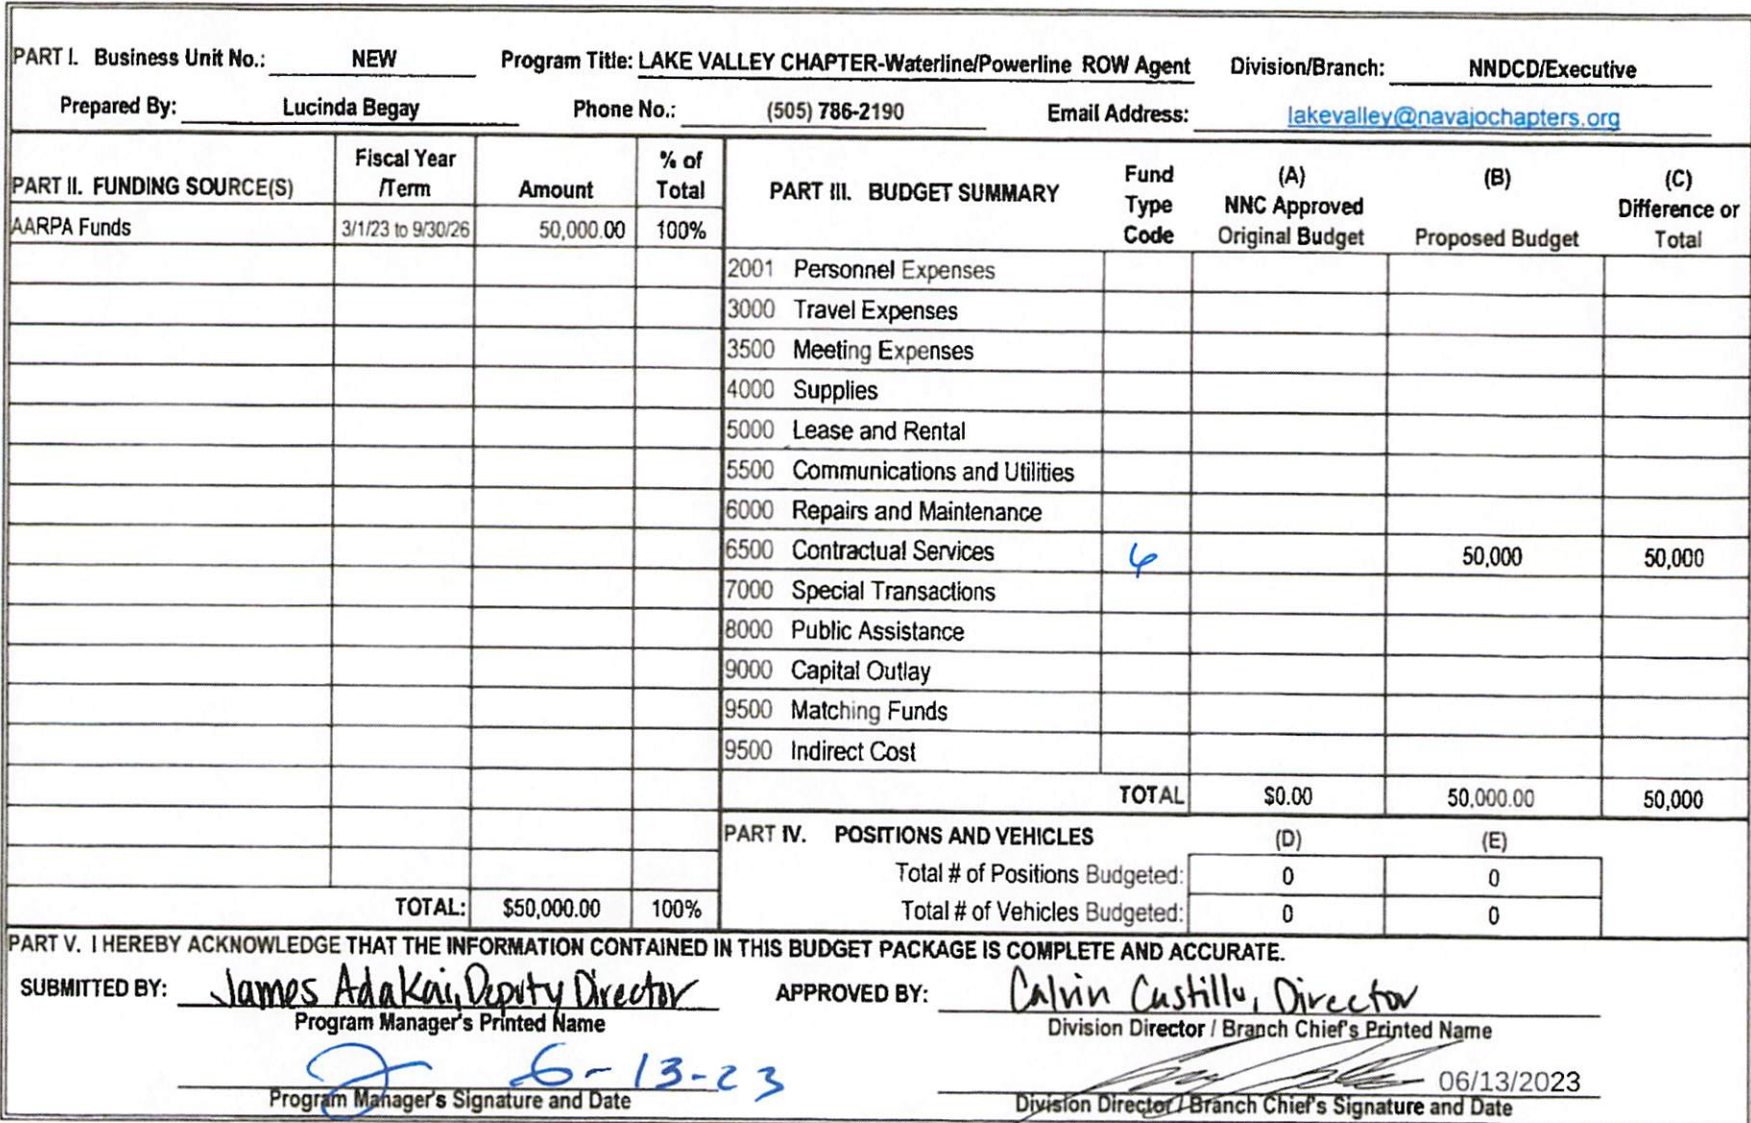 PART I. Business Unit No.: NEW Program Title: LAKE VALLEY CHAPTER-Waterline/Powerline ROW Agent Division/Branch: NNDCD/Executive
Prepared By: Lucinda Begay Phone No.: (505) 786-2190 Email Address: lakevalley@navajochapters.org
PART II. FUNDING SOURCE(S) Fiscal Year /Term Amount % of Total
AARPA Funds 3/1/23 to 9/30/26 50,000.00 100%
TOTAL: $50,000.00 100%
PART III. BUDGET SUMMARY Fund Type Code (A) NNC Approved Original Budget (B) Proposed Budget (C) Difference or Total
2001 Personnel Expenses
3000 Travel Expenses
3500 Meeting Expenses
4000 Supplies
5000 Lease and Rental
5500 Communications and Utilities
6000 Repairs and Maintenance
6500 Contractual Services 6 50,000 50,000
7000 Special Transactions
8000 Public Assistance
9000 Capital Outlay
9500 Matching Funds
9500 Indirect Cost
TOTAL $0.00 50,000.00 50,000
PART IV. POSITIONS AND VEHICLES (D) (E)
Total # of Positions Budgeted: 0 0
Total # of Vehicles Budgeted: 0 0
PART V. I HEREBY ACKNOWLEDGE THAT THE INFORMATION CONTAINED IN THIS BUDGET PACKAGE IS COMPLETE AND ACCURATE.
SUBMITTED BY: James Adakai, Deputy Director APPROVED BY: Calvin Castillo, Director
Program Manager's Printed Name Division Director / Branch Chief's Printed Name
6-13-23 06/13/2023
Program Manager's Signature and Date Division Director / Branch Chief's Signature and Date